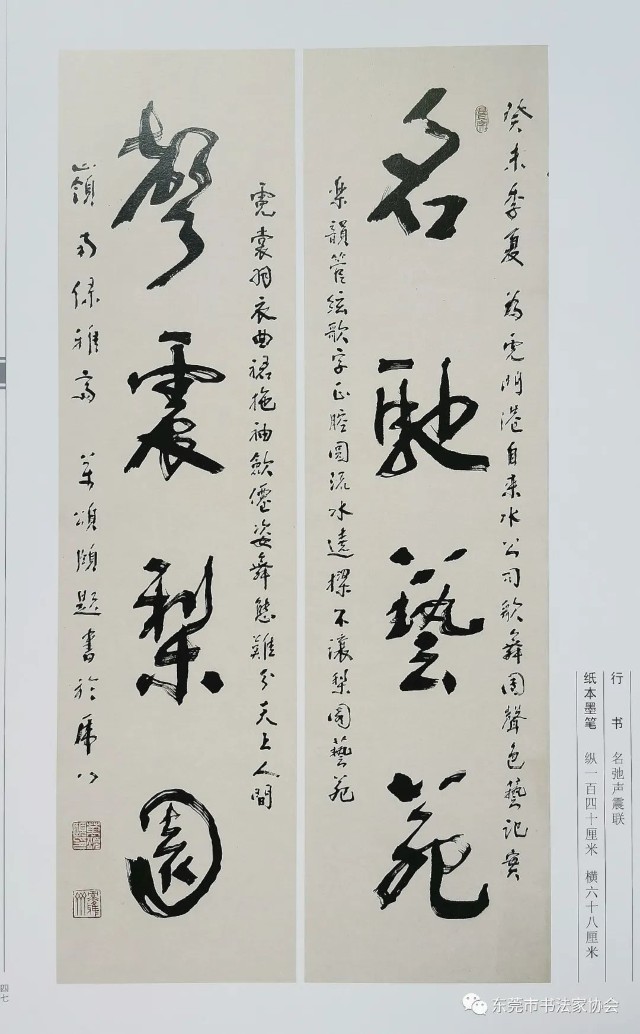 癸未季夏 为虎门港自来水公司歌舞团声色艺记实
名驰藝苑
乐韻管絃歌字正腔圆流水遠 不讓梨園藝苑
霓裳羽衣曲裙拖袖斂僊姿舞態難分天上人間
聲震梨園
山嶺南綠雅斋 葉頌頤題書於
行 书 名弛声震联
纸本墨笔 纵一百四十厘米 横六十八厘米
四七
东莞市书法家协会